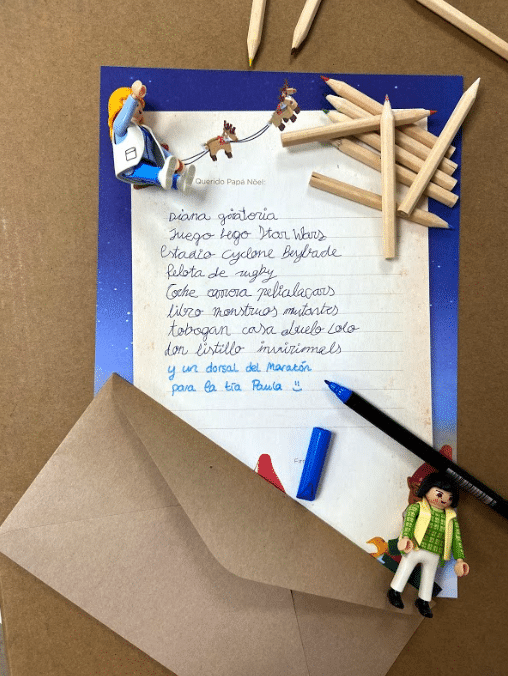 Querido Papá Nöel:
Diana giratoria
Juego Lego Star Wars
Estadio Cyclone Beyblade
Pelota de rugby
Coche carrera
libro monstruos mutantes
tobogan casa abuelo Lolo
don listillo
y un dorsal del Maratón
para la tía Paula